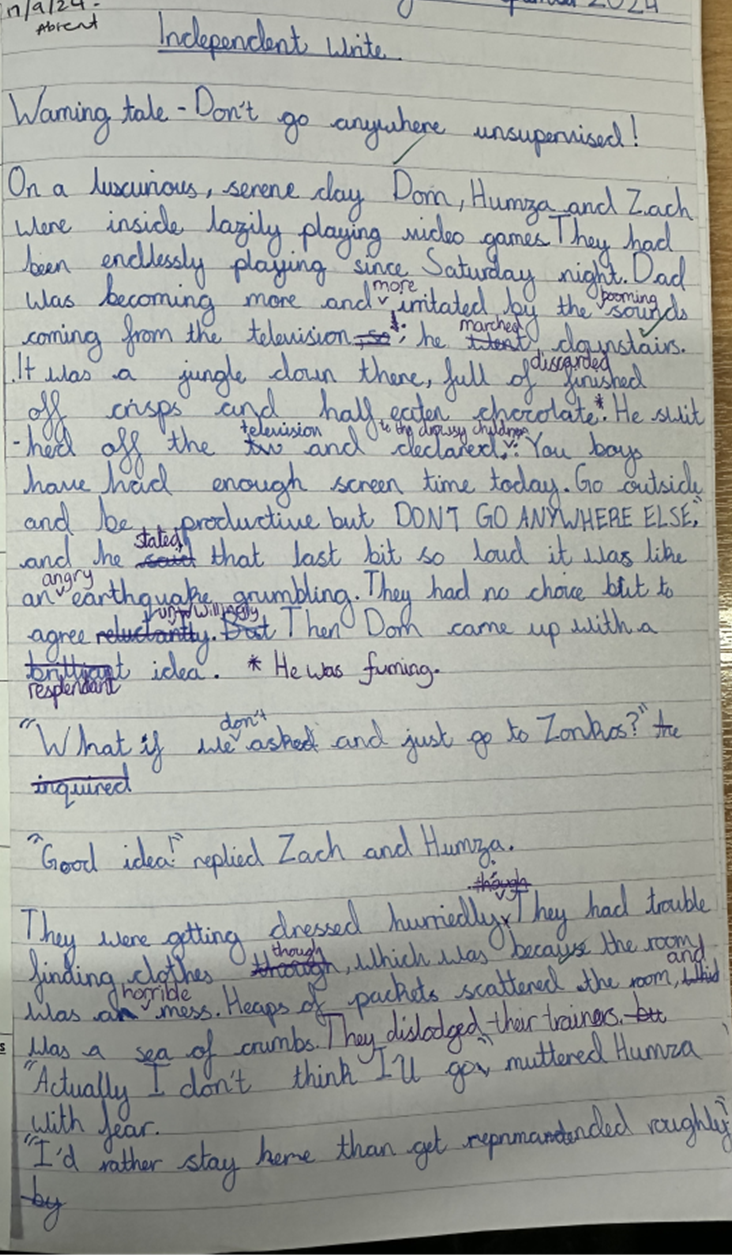 17/9/24 -
Absent
2024
Independent Write
Warning tale - Don't go anywhere unsupervised!
On a luscurious, serene day Dom, Humza and Zach
were inside lazily playing video games. They had
been endlessly playing since Saturday night. Dad
more
booming
was becoming more and irritated by the sounds
marched
coming from the television, so ; he went downstairs.
discarded
It was a jungle down there, full of finished
off crisps and half eaten chocolate.* He swit
television
to the drowsy children
-hed off the tv and declared,: You boys
have had enough screen time today. Go outside
and be productive but DON'T GO ANYWHERE ELSE,"
stated
and he said that last bit so loud it was like
angry
an earthquake grumbling. They had no choice but to
unwillingly
agree reluctantly. But Then Dom came up with a
brilliant idea. * He was fuming.
resplendant
don't
"What if we asked and just go to Zonkos?" he
inquired
"Good idea!" replied Zach and Humza.
though
They were getting dressed hurriedly. They had trouble
though
finding clothes through, which was because the room
horrible
and
was an mess. Heaps of packets scattered the room,
was a sea of crumbs. They dislodged their trainers. but
"Actually I don't think I'll go", muttered Humza
with fear.
"I'd rather stay here than get repnmandended roughly"
by